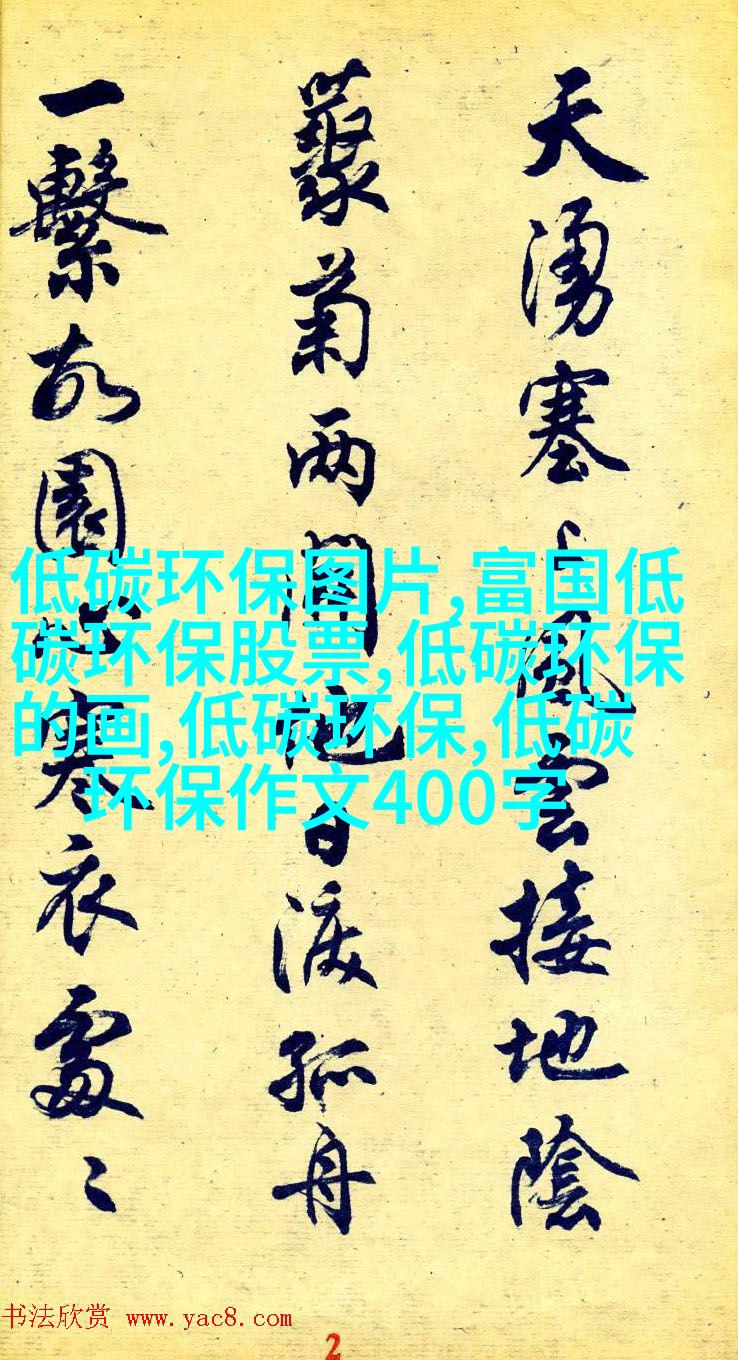 天湧塞上風雲接地陰
藂菊两開他日淚孤舟
一繫故園心寒衣處〻
低碳环保图片,富国低
碳环保股票,低碳环保
的画,低碳环保,低碳
环保作文400字
书法欣赏 www.yac8.com
2